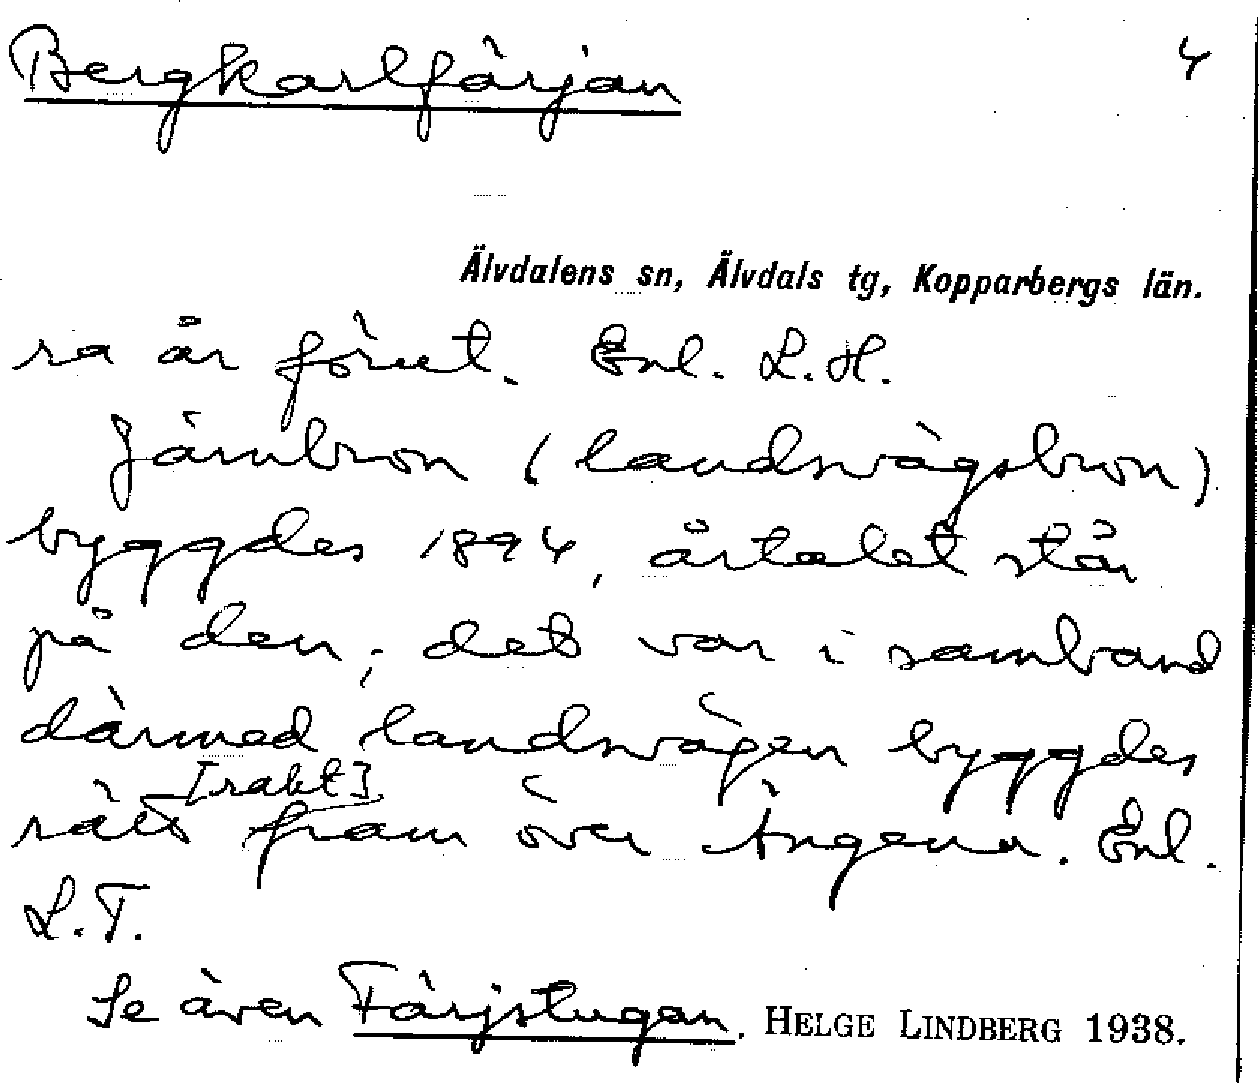 Bergkarlfärjan 4
Älvdalens sn, Älvdals tg, Kopparbergs län.
ra år förut. Enl. L.H.
Järnbron (landsvägsbron)
byggdes 1894, årtalet står
på den; det var i samband
därmed landsvägen byggdes
[rakt]
rätt fram över Ängena. Enl.
L.T.
Se även Färjstugan. HELGE LINDBERG 1938.